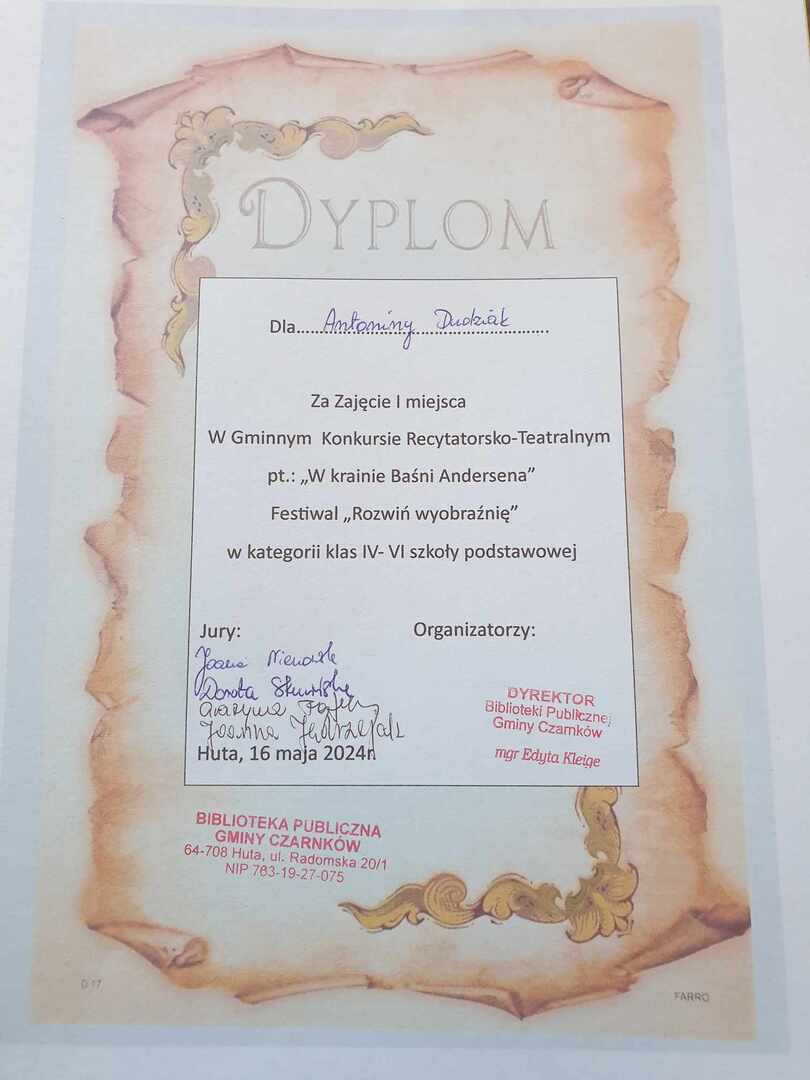 DYPLOM
Dla Antoniny Dudziak
Za Zajęcie I miejsca
W Gminnym Konkursie Recytatorsko-Teatralnym
pt.: „W krainie Baśni Andersena”
Festiwal „Rozwiń wyobraźnię”
w kategorii klas IV- VI szkoły podstawowej
Jury:
Organizatorzy:
Joanna
Dorota
Grażyna
Joanna
Huta, 16 maja 2024r.
DYREKTOR
Biblioteki Publicznej
Gminy Czarnków
mgr Edyta Kleige
BIBLIOTEKA PUBLICZNA
GMINY CZARNKÓW
64-708 Huta, ul. Radomska 20/1
NIP 763-19-27-075
D 17
FARRO